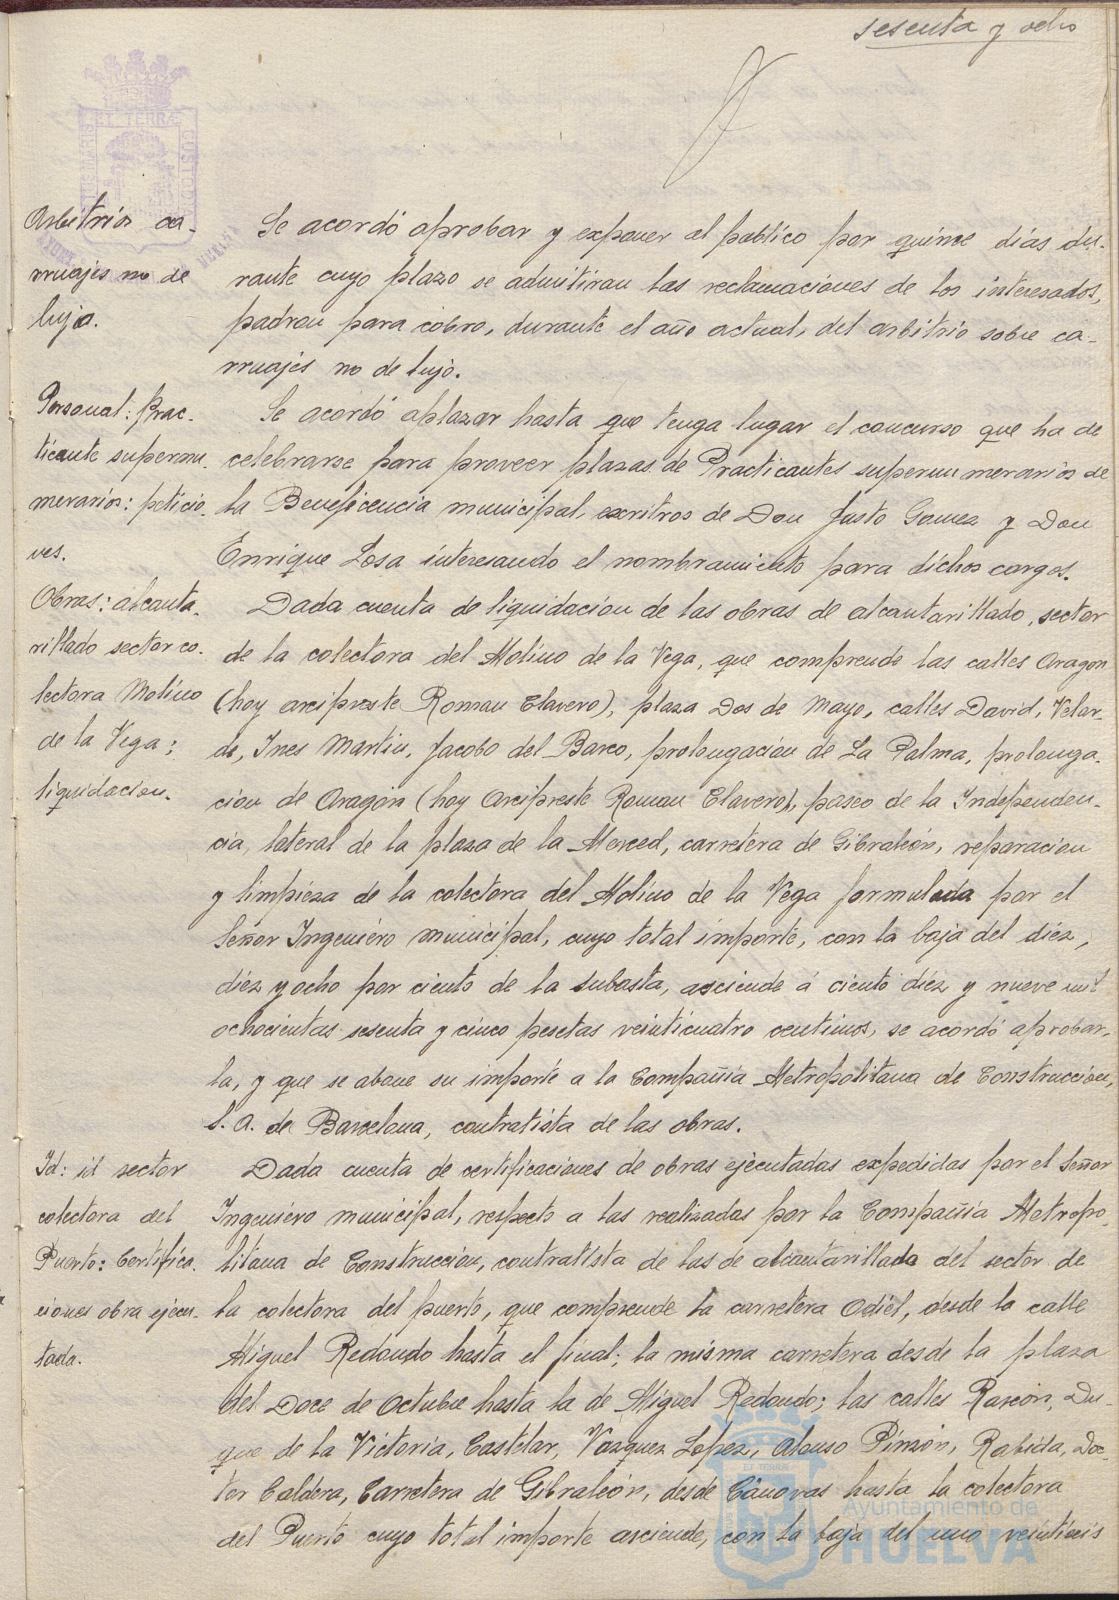 sesenta y ocho
ET TERRÆ CUSTODIA
Arbitrios ca-
rruajes no de
lujo.
Se acordó aprobar y exponer al público por quince dias du-
rante cuyo plazo se admitiran las reclamaciones de los interesados,
padron para cobro, durante el año actual, del arbitrio sobre ca-
rruajes no de lujo.
Personal: Prac-
ticante supernu-
merarios: peticio-
nes.
Se acordó aplazar hasta que tenga lugar el concurso que ha de
celebrarse para proveer plazas de Practicantes supernumerarios de
la Beneficencia municipal, escritros de Don Justo Gomez y Don
Enrique Losa interesando el nombramiento para dichos cargos.
Obras: alcanta-
rillado sector co-
lectora Molino
de la Vega:
liquidacion.
Dada cuenta de liquidacion de las obras de alcantarillado, sector
de la colectora del Molino de la Vega, que comprende las calles Aragon
(hoy arcipreste Roman Clavero), plaza Dos de Mayo, calles David, Velar-
de, Ines Martin, Jacobo del Barco, prolongacion de La Palma, prolonga-
cion de Aragón (hoy Arcipreste Roman Clavero), paseo de la Independen-
cia, lateral de la plaza de la Merced, carretera de Gibraleón, reparacion
y limpieza de la colectora del Molino de la Vega formulada por el
Señor Ingeniero municipal, cuyo total importe, con la baja del diéz,
diéz y ocho por ciento de la subasta, asciende á ciento diéz y nueve mil
ochocientas sesenta y cinco pesetas veinticuatro centimos, se acordó aprobar-
la, y que se abone su importe a la Compañia Metropolitana de Construccion,
S. A. de Barcelona, contratista de las obras.
Id: id sector
colectora del
Puerto: Certifica-
ciones obra ejecu-
tada.
Dada cuenta de certificaciones de obras ejecutadas expedidas por el Señor
Ingeniero municipal, respecto a las realizadas por la Compañia Metropo-
litana de Construccion, contratista de las de alcantarillado del sector de
la colectora del puerto, que comprende la carretera Odiel, desde la calle
Miguel Redondo hasta el final; la misma carretera desde la plaza
del Doce de Octubre hasta la de Miguel Redondo; las calles Rascón, Du-
que de la Victoria, Castelar, Vazquez Lopez, Alonso Pinzón, Rabida, Doc-
tor Caldera, Carretera de Gibraleón, desde Cánovas hasta la colectora
del Puerto cuyo total importe asciende, con la baja del uno veintiseis
Ayuntamiento de
HUELVA